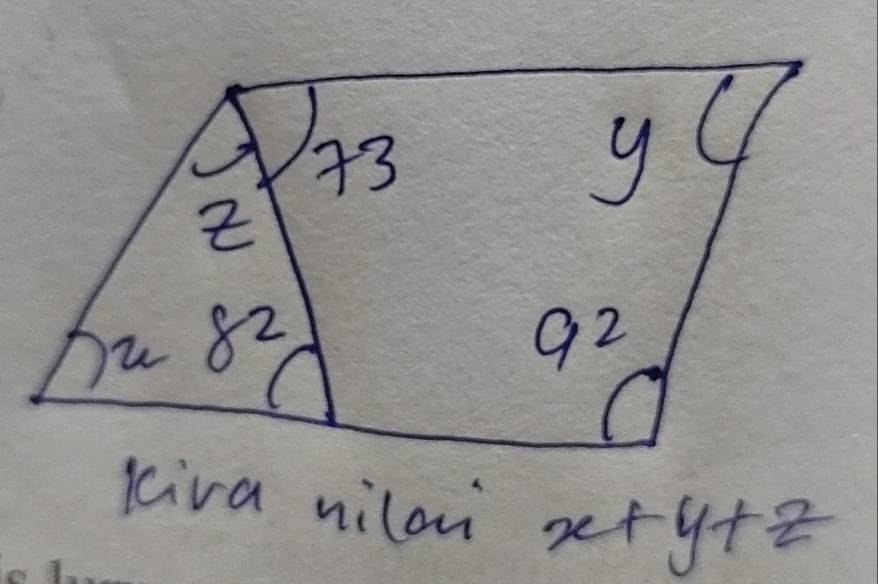 73
y
z
x 82
92
Kira nilai x+y+z